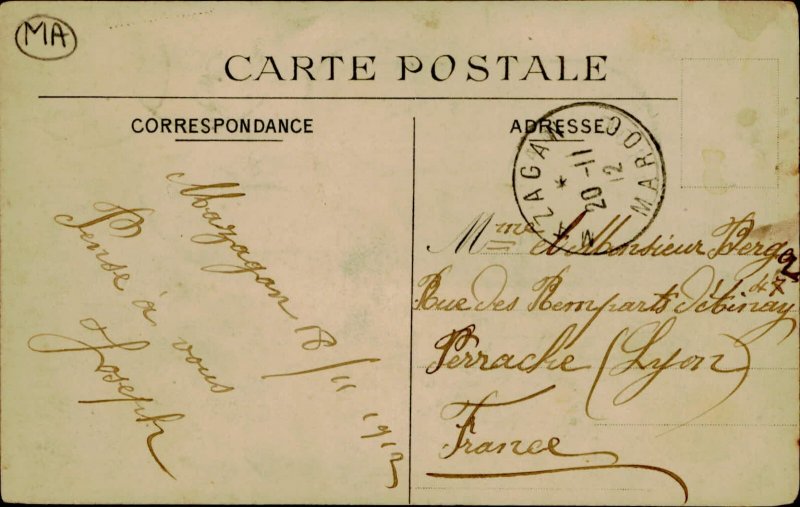 MA
CARTE POSTALE
CORRESPONDANCE
ADRESSE
MAZAGAN
20-11
12
MAROC
Mazagan 18/11 1912
Pense à vous
Joseph
Mme et Monsieur
47
Rue des Remparts d'
Perrache (Lyon)
France